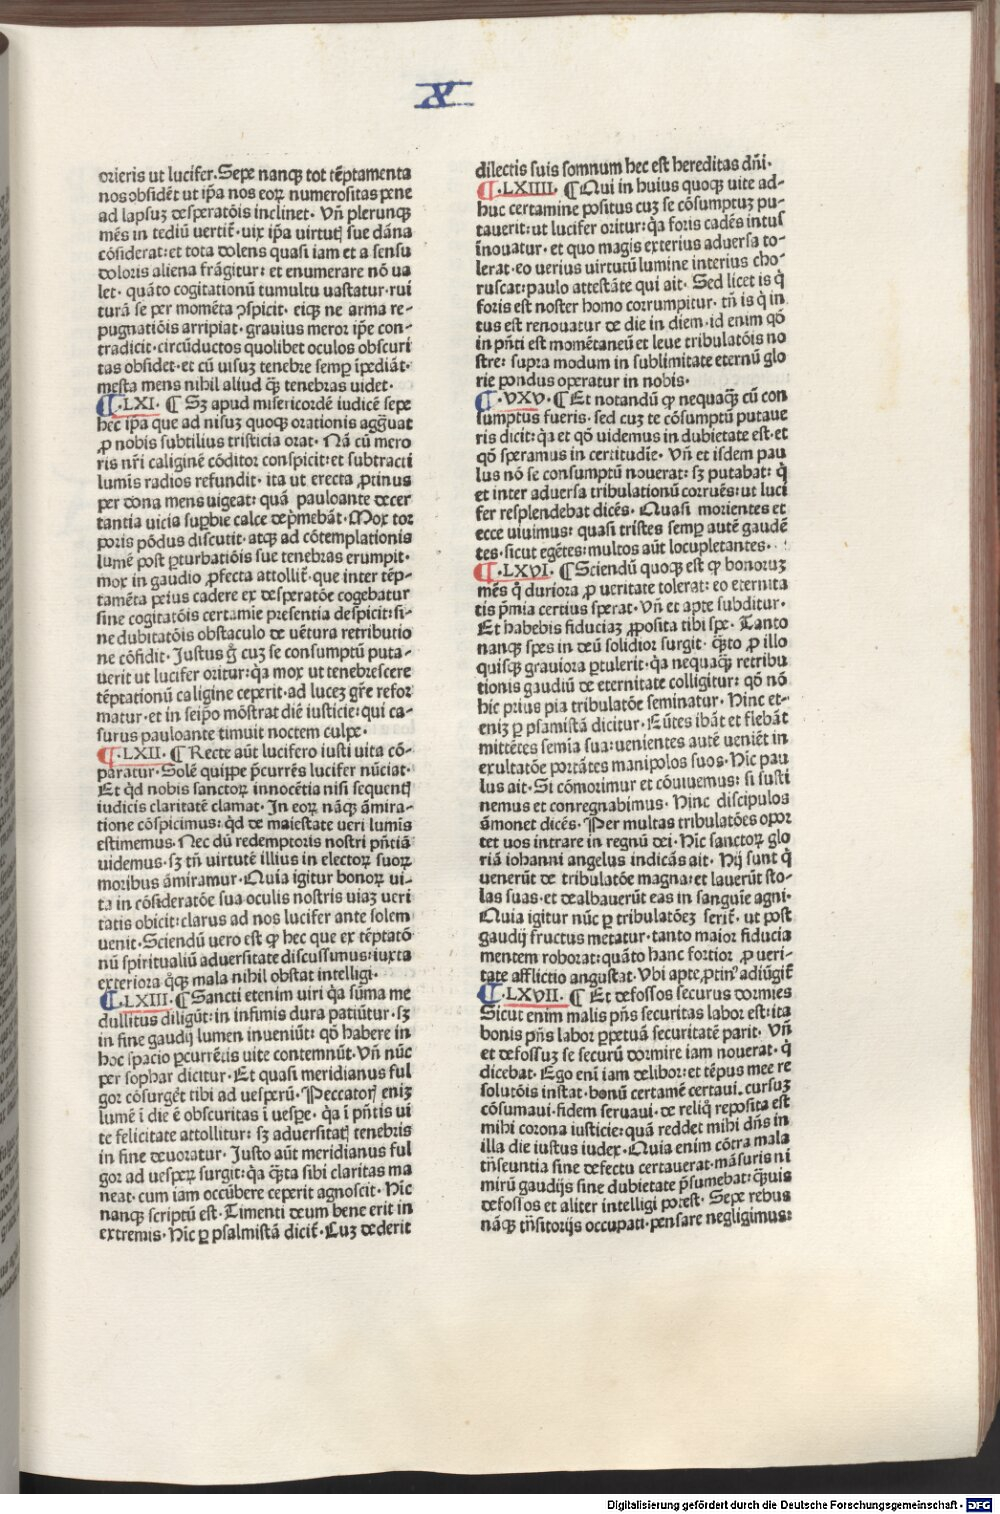 X
orieris ut lucifer. Sepe nanqꝫ tot tẽptamenta
nos obsidẽt ut ip̃a nos eoꝝ numerositas pene
ad lapsuꝫ desperatõis inclinet. Vñ plerunqꝫ
mẽs in tediũ uertit̃. uix ip̃a virtutꝭ sue dãna
cõsiderat: et tota dolens quasi iam et a sensu
doloris aliena frãgitur: et enumerare nõ ua
let. quãto cogitationũ tumultu uastatur. rui
turã se per momẽta ꝯspicit. eiqꝫ ne arma re-
pugnatiõis arripiat. grauius meror ip̃e con-
tradicit. circũductos quolibet oculos obscuri
tas obsidet. et cũ uisuꝫ tenebre semꝑ ĩpediãt.
mesta mens nihil aliud qꝫ̃ tenebras uidet.
¶.LXI. ¶ Sꝫ apud misericordẽ iudicẽ sepe
hec ip̃a que ad nisuꝫ quoqꝫ orationis agg̃uat
ꝓ nobis subtilius tristicia orat. Nã cũ mero
ris nr̃i caliginẽ cõditor conspicit: et subtracti
lumĩs radios refundit. ita ut erecta ꝓtinus
per dona mens uigeat: quã pauloante decer
tantia uicia suꝑbie calce dep̃mebãt. Mox tor
poris põdus discutit. atqꝫ ad cõtemplationis
lumẽ post ꝑturbatiõis sue tenebras erumpit.
mox in gaudio ꝓfecta attollit̃. que inter tẽp-
tamẽta peius cadere ex desperatõe cogebatur
sine cogitatõis certamie presentia despicit: si-
ne dubitatõis obstaculo de uẽtura retributio
ne cõfidit. Justus g̃ cuꝫ se consumptũ puta-
uerit ut lucifer oritur: q̃a mox ut tenebrescere
tẽptationũ caligine ceperit. ad luceꝫ gr̃e refor
matur. et in seip̃o mõstrat diẽ iusticie: qui ca-
surus pauloante timuit noctem culpe.
¶.LXII. ¶ Recte aũt lucifero iusti uita cõ-
paratur. Solẽ quippe p̃currẽs lucifer nũciat.
Et q̃d nobis sanctoꝝ innocẽtia nisi sequentꝭ
iudicis claritatẽ clamat. In eoꝝ nãqꝫ ãmira-
tione cõspicimus: q̃d de maiestate ueri lumĩs
estimemus. Nec dũ redemptoris nostri pñtiã
uidemus. sꝫ tñ virtutẽ illius in electoꝝ suoꝝ
moribus ãmiramur. Quia igitur bonoꝝ ui-
ta in cõsideratõe sua oculis nostris uiaꝫ ueri
tatis obicit: clarus ad nos lucifer ante solem
venit. Sciendũ uero est ꝙ hec que ex tẽptatõ
nũ spiritualiũ aduersitate discussimus: iuxta
exteriora q̊qꝫ mala nihil obstat intelligi.
¶.LXIII. ¶ Sancti etenim uiri q̃a sũma me
dullitus diligũt: in infimis dura patiũtur. sꝫ
in fine gaudij lumen inueniũt: qõ habere in
hoc spacio ꝑcurrẽtis uite contemnũt. Vñ nũc
per sophar dicitur. Et quasi meridianus ful
gor cõsurget̃ tibi ad uesperũ. Peccatorꝭ eniꝫ
lumẽ ĩ die ẽ obscuritas ĩ uesꝑe. q̃a ĩ pñtis ui
te felicitate attollitur: sꝫ aduersitatꝭ tenebris
in fine deuoratur. Justo aũt meridianus ful
gor ad uesꝑeꝝ surgit: q̃a q̃ꝫta sibi claritas ma
neat. cum iam occũbere ceperit agnoscit. Hic
nanqꝫ scriptũ est. Timenti deum bene erit in
extremis. Hic ꝑ psalmistã dicit̃. Cuꝫ dederit
dilectis suis somnum hec est hereditas dñi.
¶.LXIIII. ¶ Qui in huius quoqꝫ uite ad-
huc certamine positus cuꝫ se cõsumptuꝫ pu-
tauerit: ut lucifer oritur: q̃a foris cadẽs intus
ĩnouatur. et quo magis exterius aduersa to-
lerat. eo uerius uirtutũ lumine interius cho-
ruscat: paulo attestãte qui ait. Sed licet is q̃
foris est noster homo corrumpitur. tñ is q̃ in
tus est renouatur de die in diem. id enim qõ
in pñti est momẽtaneũ et leue tribulatõis no
stre: supra modum in sublimitate eternũ glo
rie pondus operatur in nobis.
¶.VXV. ¶ Et notandũ ꝙ nequaqꝫ̃ cũ con
sumptus fueris. sed cuꝫ te cõsumptũ putaue
ris dicit: q̃a et qõ uidemus in dubietate est. et
qõ speramus in certitudĩe. Vñ et isdem pau
lus nõ se consumptũ nouerat: sꝫ putabat: q̃
et inter aduersa tribulationũ corruẽs: ut luci
fer resplendebat dicẽs. Quasi morientes et
ecce uiuimus: quasi tristes semꝑ autẽ gaudẽ
tes. sicut egẽtes: multos aũt locupletantes.
¶.LXVI. ¶ Sciendũ quoqꝫ est ꝙ bonoruꝫ
mẽs q̃ duriora ꝓ ueritate tolerat: eo eternita
tis p̃mia certius sperat. Vñ et apte subditur.
Et habebis fiduciaꝫ ꝓposita tibi spe. Tanto
nanqꝫ spes in deũ solidior surgit. q̃ꝫto ꝓ illo
quisqꝫ grauiora ꝑtulerit. q̃a nequaqꝫ̃ retribu
tionis gaudiũ de eternitate colligitur: qõ nõ
hic prius pia tribulatõe seminatur. Hinc et-
eniꝫ ꝑ psamistã dicitur. Eũtes ibãt et flebãt
mittẽtes semĩa sua: uenientes autẽ ueniẽt in
exultatõe portãtes manipolos suos. Hĩc pau
lus ait. Si cõmorimur et cõuiuemus: si susti
nemus et conregnabimus. Hinc discipulos
ãmonet dicẽs. Per multas tribulatões opor
tet uos intrare in regnũ dei. Hic sanctoꝝ glo
riã iohanni angelus indicãs ait. Hij sunt q̃
venerũt de tribulatõe magna: et lauerũt sto-
las suas et dealbauerũt eas in sanguĩe agni.
Quia igitur nũc ꝑ tribulatõeꝫ serit̃. ut post
gaudij fructus metatur. tanto maior fiducia
mentem roborat: quãto hanc fortior ꝓ ueri-
tate afflictio angustat. Vbi apte ꝓtinꝰ adiũgit̃
¶.LXVII. ¶ Et defossos securus dormies
Sicut enim malis pñs securitas labor est: ita
bonis pñs labor ꝑpetuã securitatẽ parit. Vñ
et defossuꝫ se securũ dormire iam nouerat. q̃
dicebat. Ego enĩ iam delibor: et tẽpus mee re
solutõis instat. bonũ certamẽ certaui. cursuꝫ
cõsumaui. fidem seruaui. de reliq̃ reposita est
mihi corona iusticie: quã reddet mihi dñs in
illa die iustus iudex. Quia enim cõtra mala
tñseuntia sine defectu certauerat. mãsuris ni
mirũ gaudijs sine dubietate p̃sumebat: q̃ꝫuis
defossos et aliter intelligi potest. Sepe rebus
nãqꝫ tñsitorijs occupati. pensare negligimus:
Digitalisierung gefördert durch die Deutsche Forschungsgemeinschaft - DFG